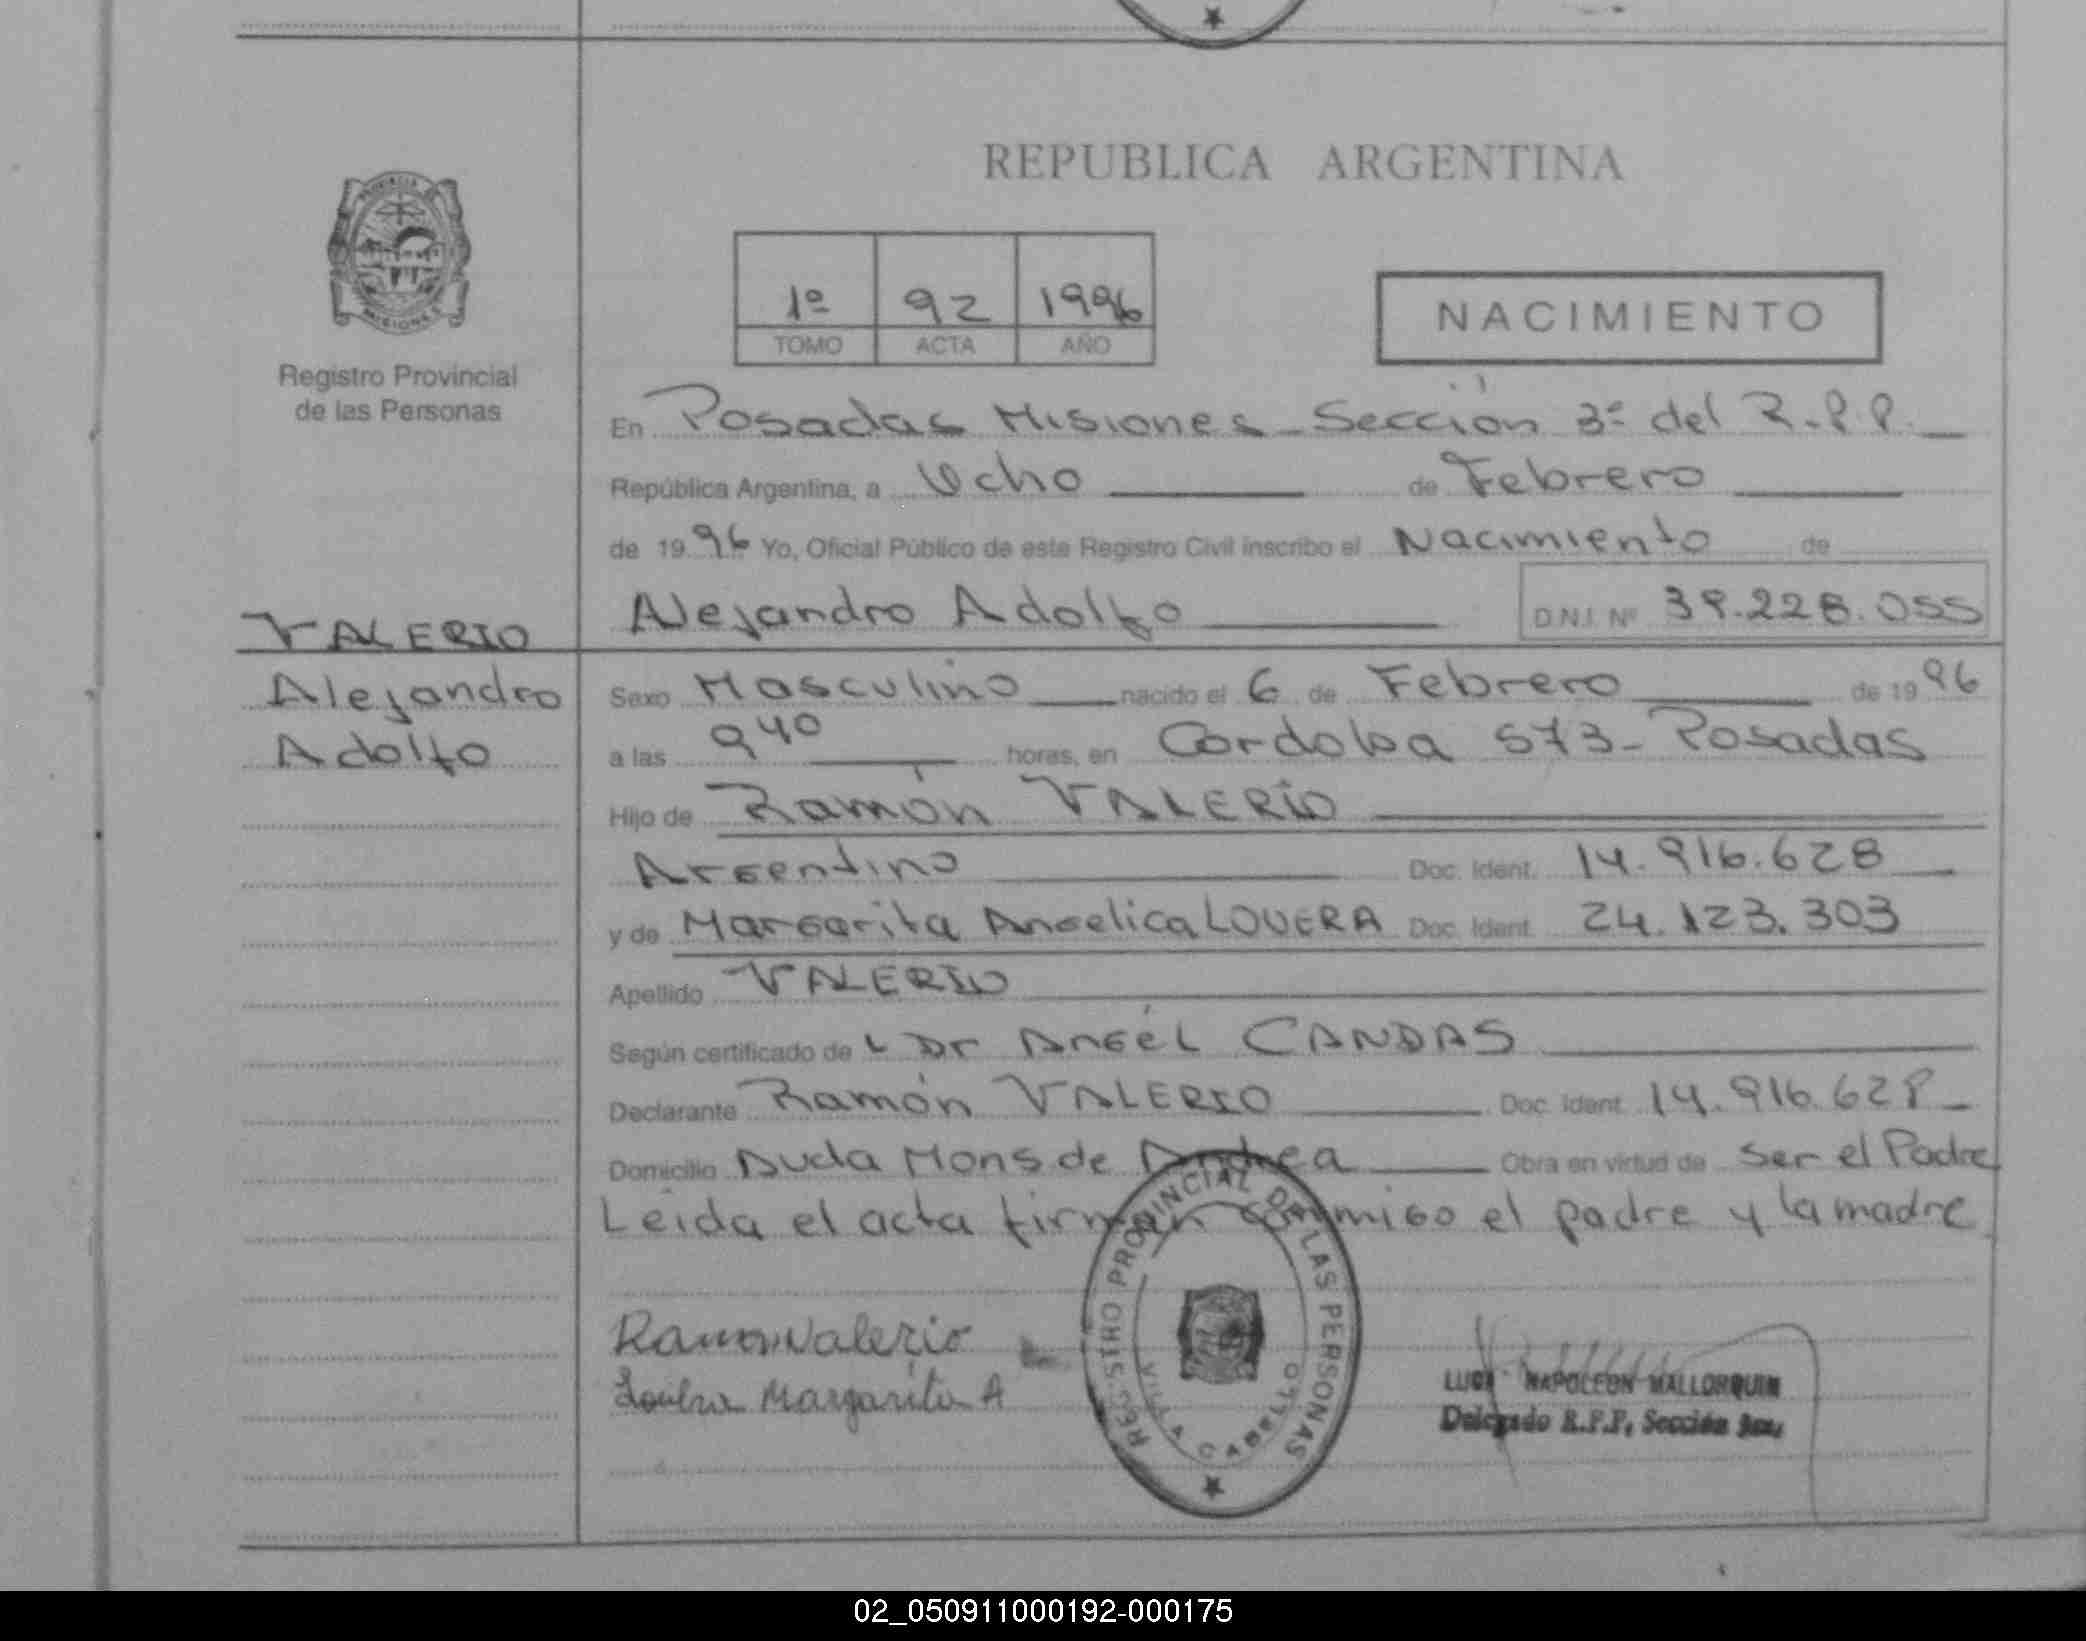 REPUBLICA ARGENTINA
PROVINCIA DE MISIONES
Registro Provincial
de las Personas
1º 92 1996
TOMO ACTA AÑO
NACIMIENTO
En Posadas Misiones - Sección 3º del R.P.P.
República Argentina, a Ocho de Febrero
de 1996 Yo, Oficial Público de este Registro Civil inscribo el Nacimiento de
Alejandro Adolfo D.N.I. Nº 39.228.055
VALERIO
Alejandro
Adolfo
Sexo Masculino nacido el 6 de Febrero de 1996
a las 9 40 horas, en Cordoba 573 - Posadas
Hijo de Ramón VALERIO
Argentino Doc. Ident. 14.916.628
y de Margarita Angelica LOVERA Doc. Ident. 24.123.303
Apellido VALERIO
Según certificado de L Dr Angél CANDAS
Declarante Ramón VALERIO Doc. Ident. 14.916.628
Domicilio Avda Mons de Andrea Obra en virtud de ser el Padre
Leida el acta firman conmigo el padre y la madre
Ramon Valerio
Lovera Margarita A
REGISTRO PROVINCIAL DE LAS PERSONAS
VILLA CABELLO
NAPOLEON MALLORQUIN
Delegado R.P.P. Sección 3ra.
02_050911000192-000175